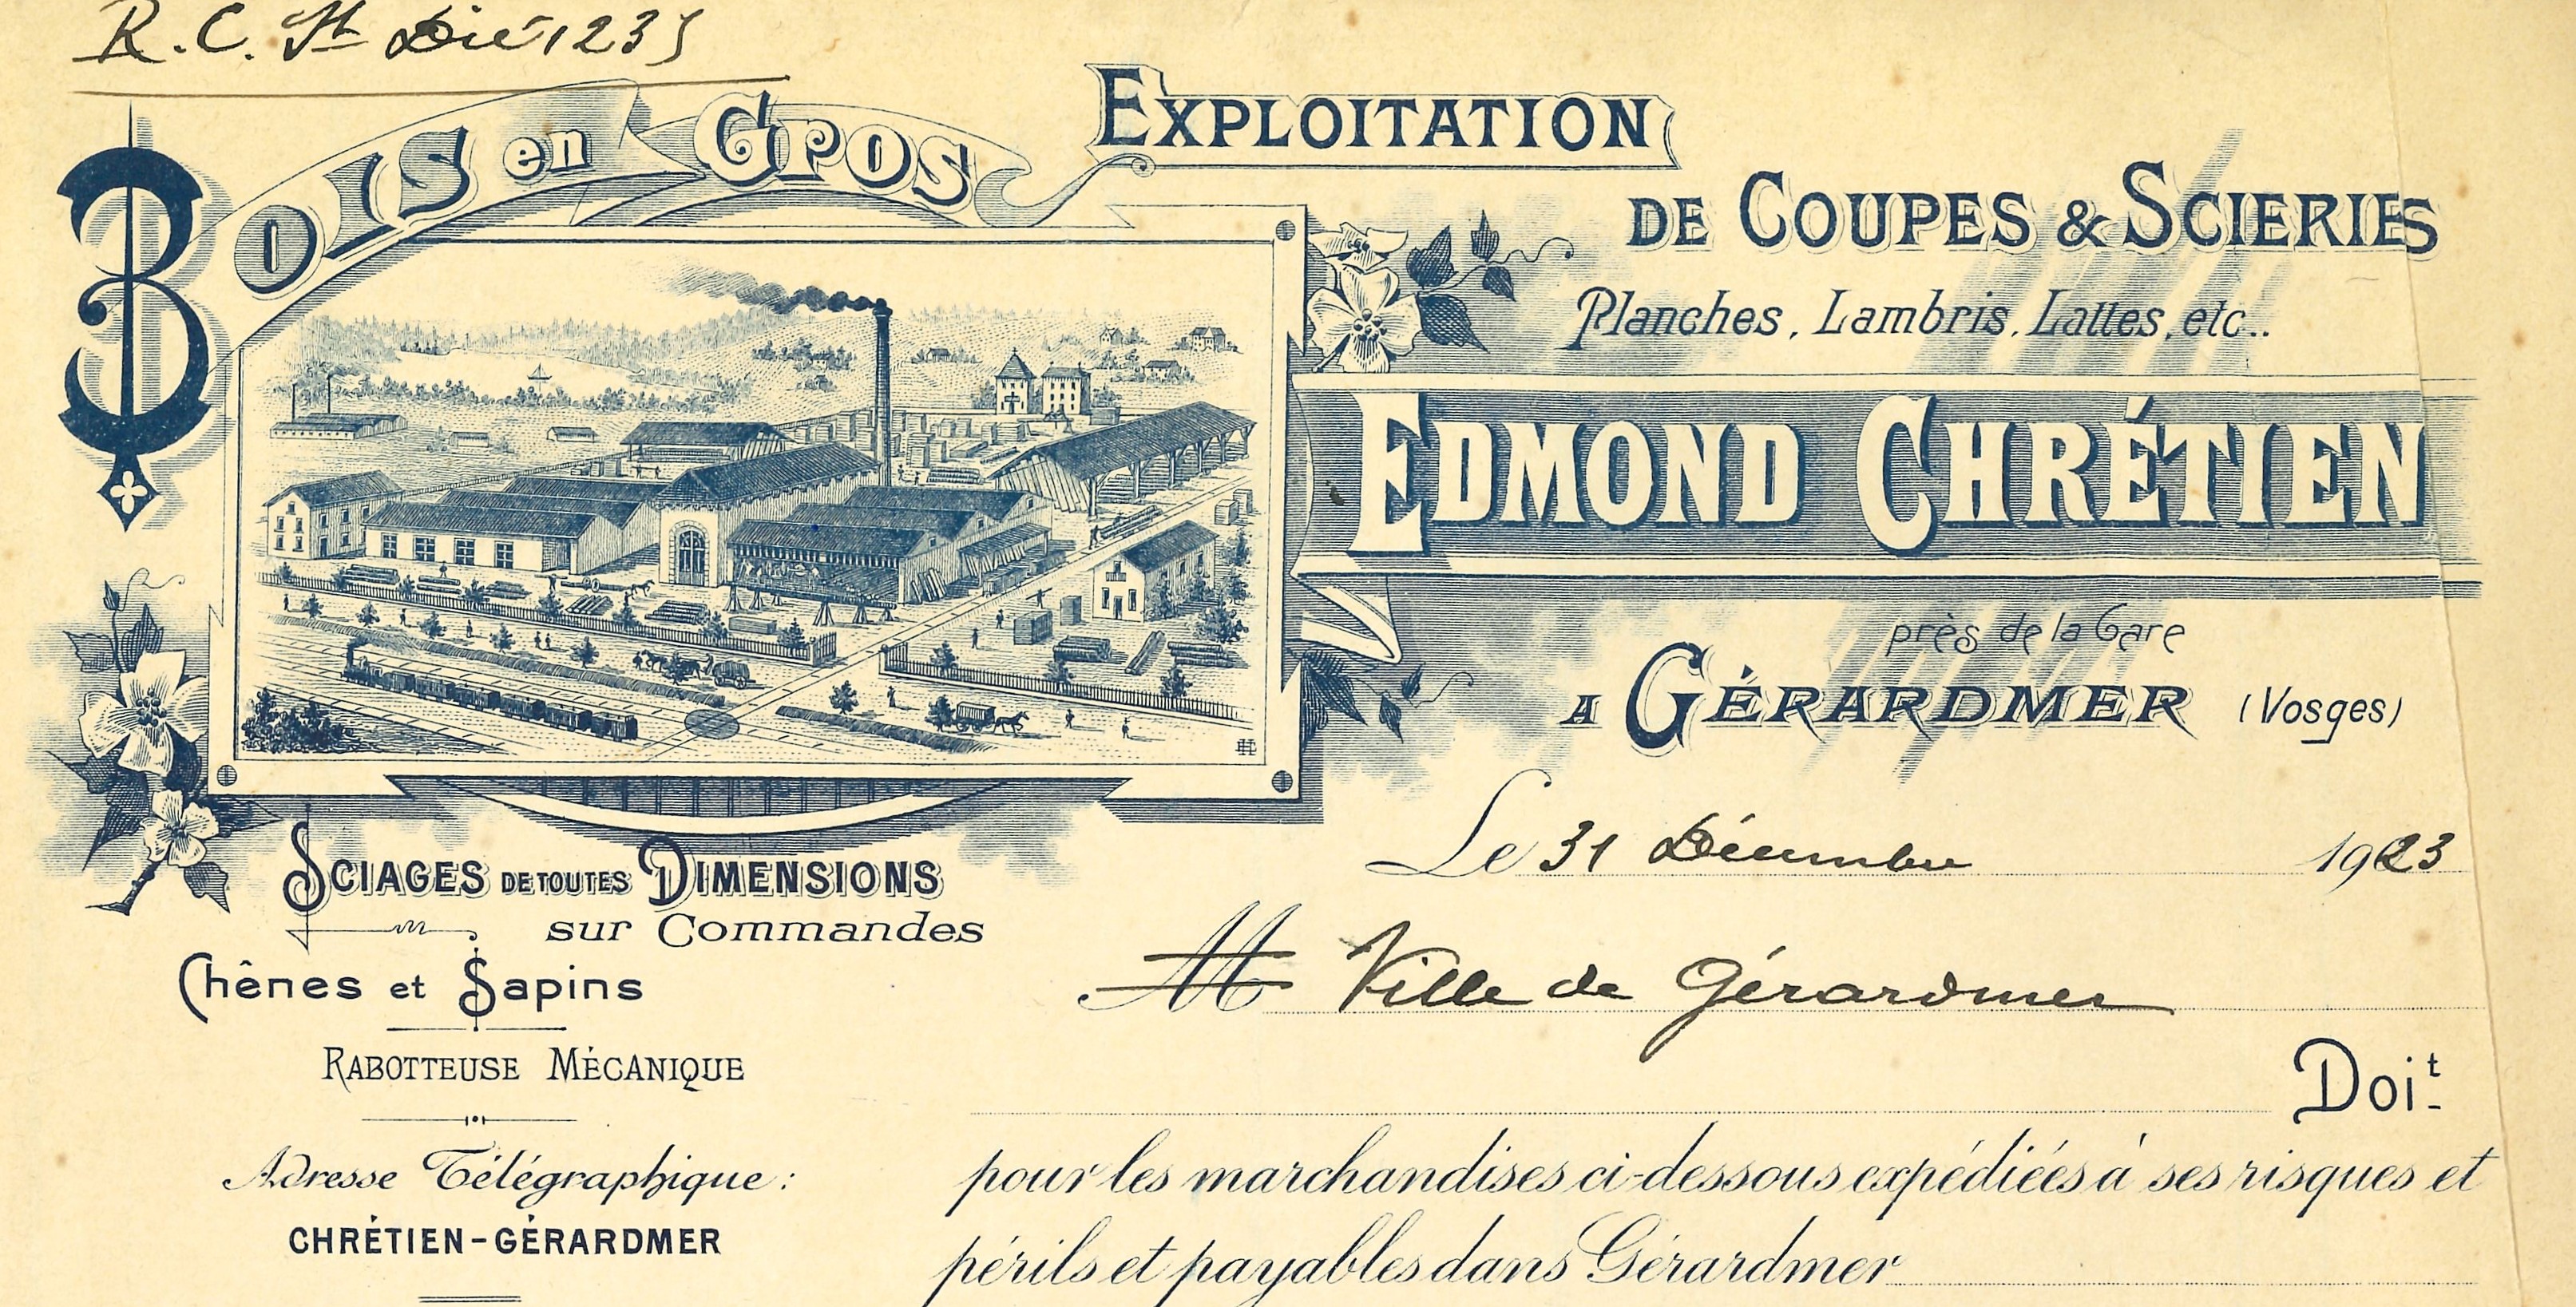 R.C. St Dié 1235
Bois en Gros
Exploitation
de Coupes & Scieries
Planches, Lambris, Lattes, etc..
Edmond Chrétien
près de la Gare
à Gérardmer (Vosges)
Le 31 Décembre 1923
M Ville de Gérardmer
Doit
pour les marchandises ci-dessous expédiées à ses risques et
périls et payables dans Gérardmer
Sciages de toutes Dimensions
sur Commandes
Chênes et Sapins
Rabotteuse Mécanique
Adresse Télégraphique :
CHRÉTIEN-GÉRARDMER